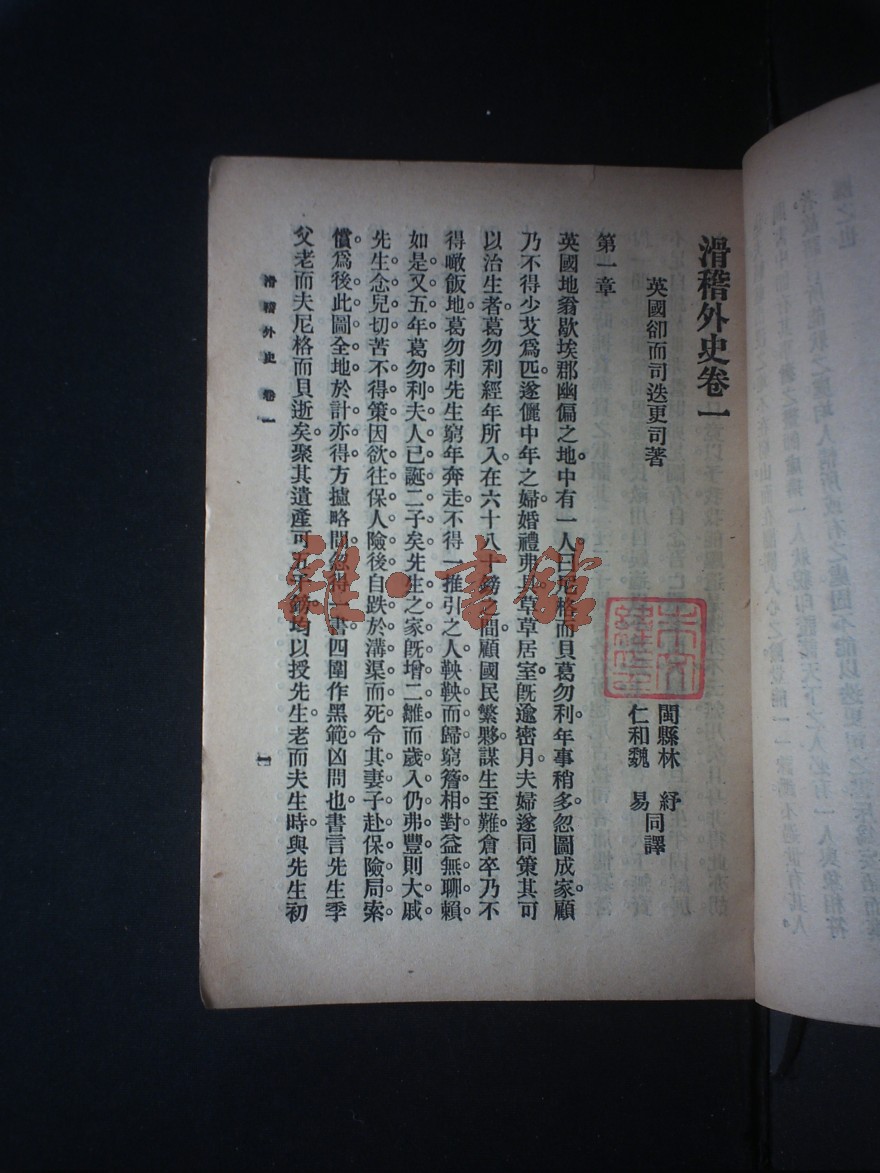 滑稽外史卷一
英國卻而司迭更司著
閩縣林 紓
仁和魏 易同譯
第一章
英國地翁歇埃郡幽偏之地中有一人曰尼格而貝葛勿利年事稍多忽圖成家顧
乃不得少艾爲匹遂儷中年之婦婚禮弗具草草居室旣逾密月夫婦遂同策其可
以治生者葛勿利經年所入在六十八十鎊之間顧國民繁夥謀生至難倉卒乃不
得噉飯地葛勿利先生窮年奔走不得一推引之人鞅鞅而歸窮簷相對益無聊賴
如是又五年葛勿利夫人已誕二子矣先生之家旣增二雛而歲入仍弗豐則大戚
先生念兒切苦不得策因欲往保人險後自跌於溝渠而死令其妻子赴保險局索
償爲後此圖全地於計亦得方攄略間忽得一書四圍作黑範凶問也書言先生季
父老而夫尼格而貝逝矣聚其遺產可五千鎊均以授先生老而夫生時與先生初
滑稽外史 卷一
一
雜·書館